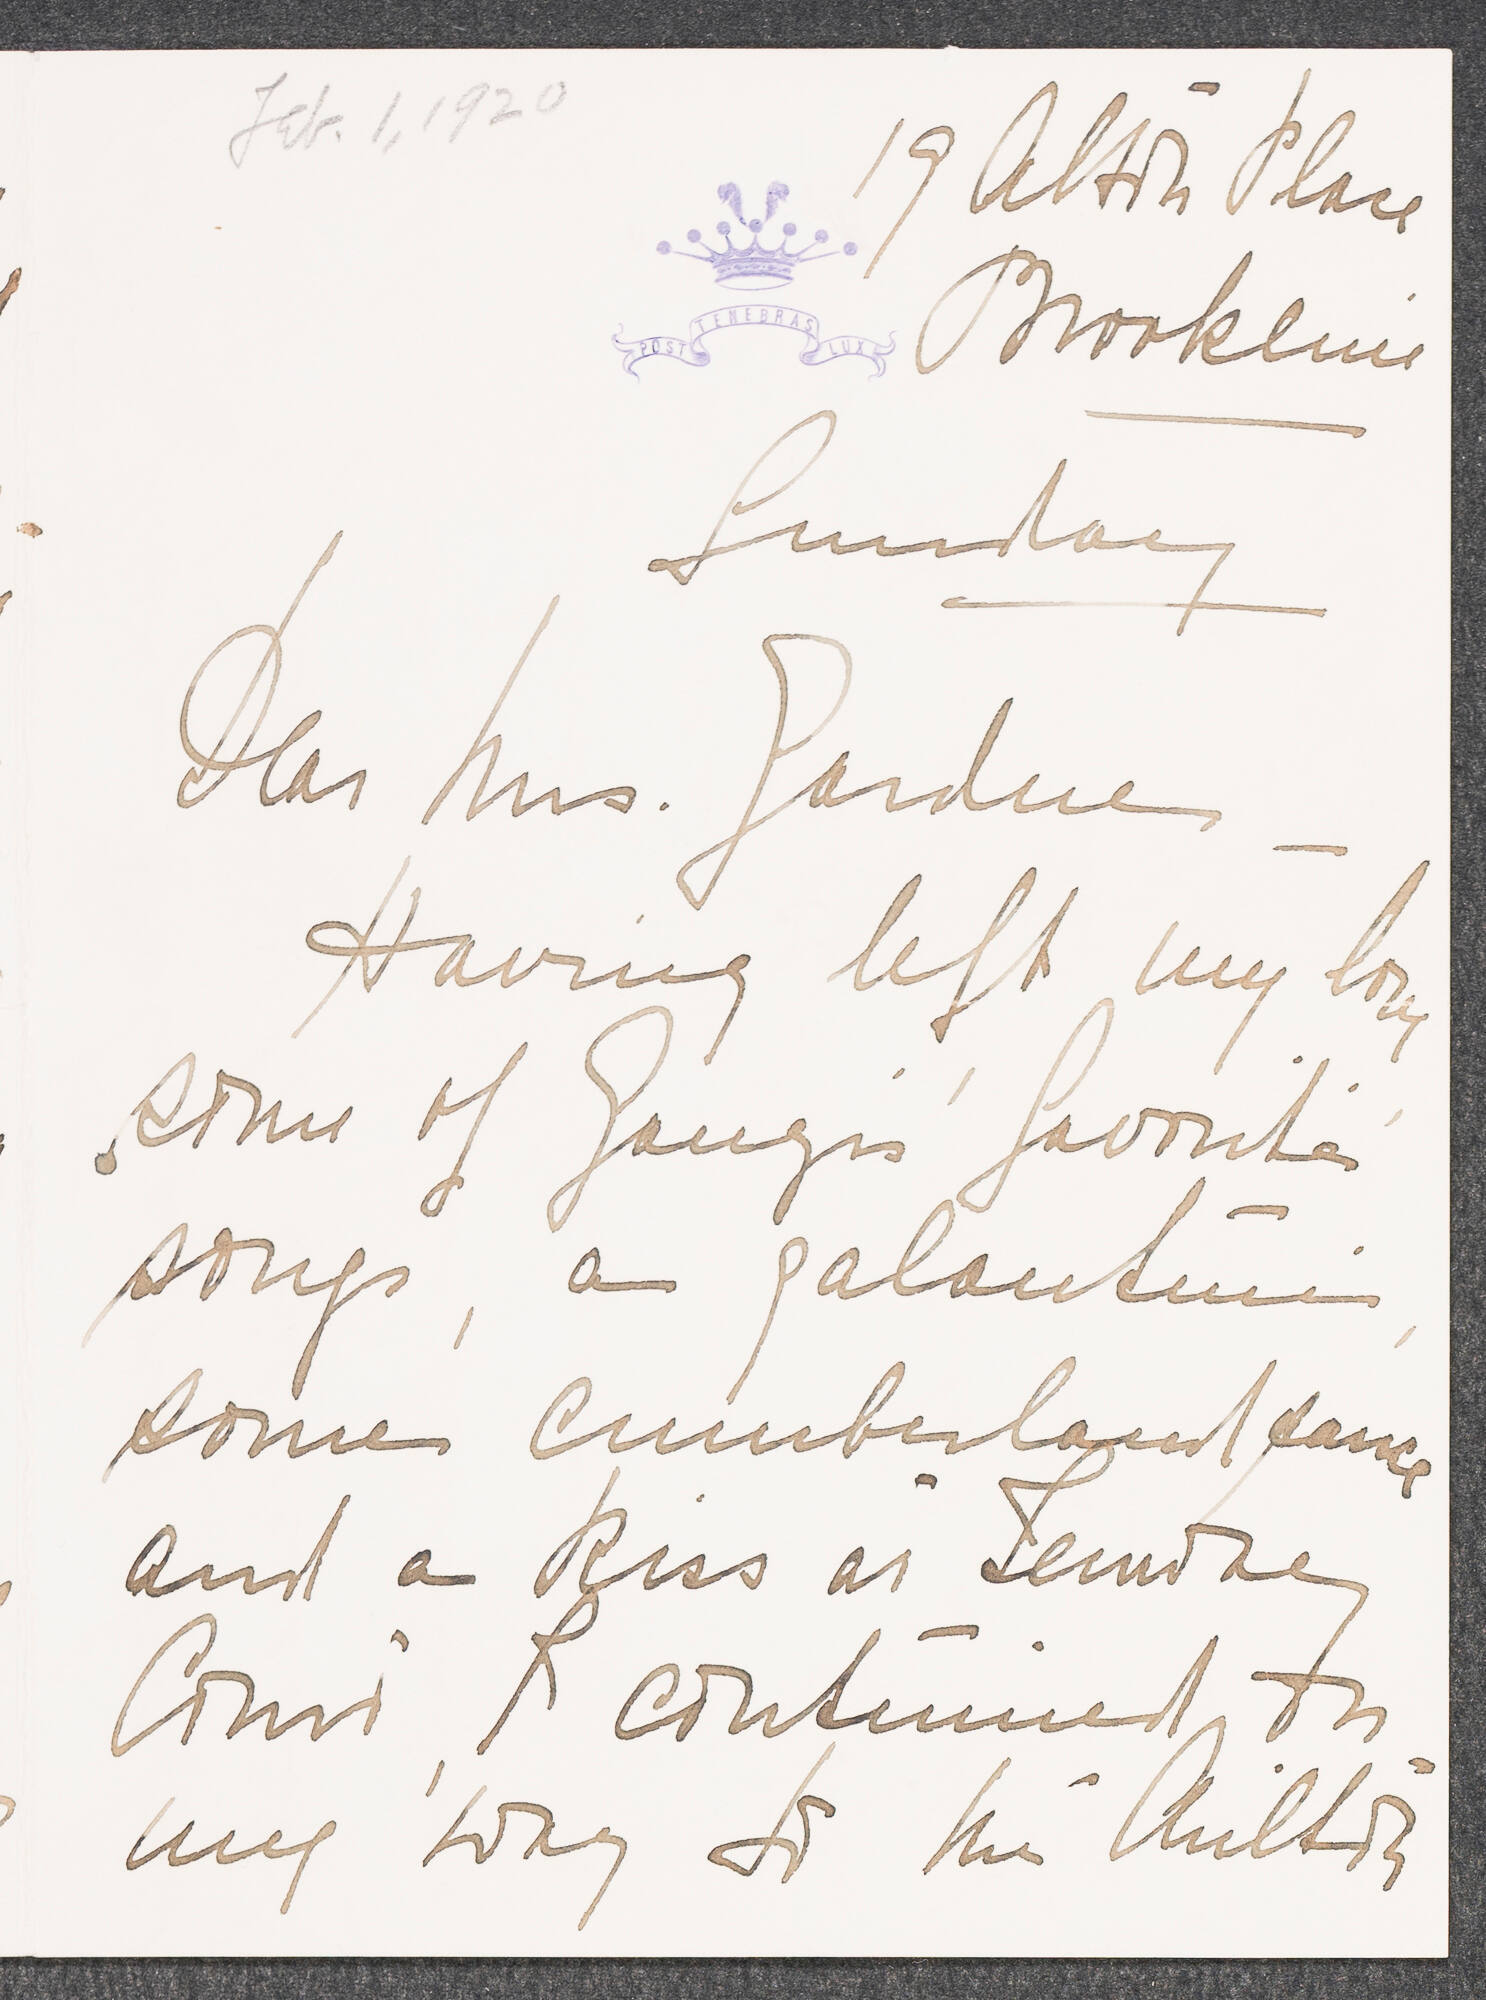 Feb. 1, 1920
19 Alton Place
Brookline
POST TENEBRAS LUX
Sunday
Dear Mrs. Gardner —
Having left my boy
some of Gangi's favorite
songs, a galantine,
some cumberland sauce
and a kiss at
I continued on
my way to the Milton